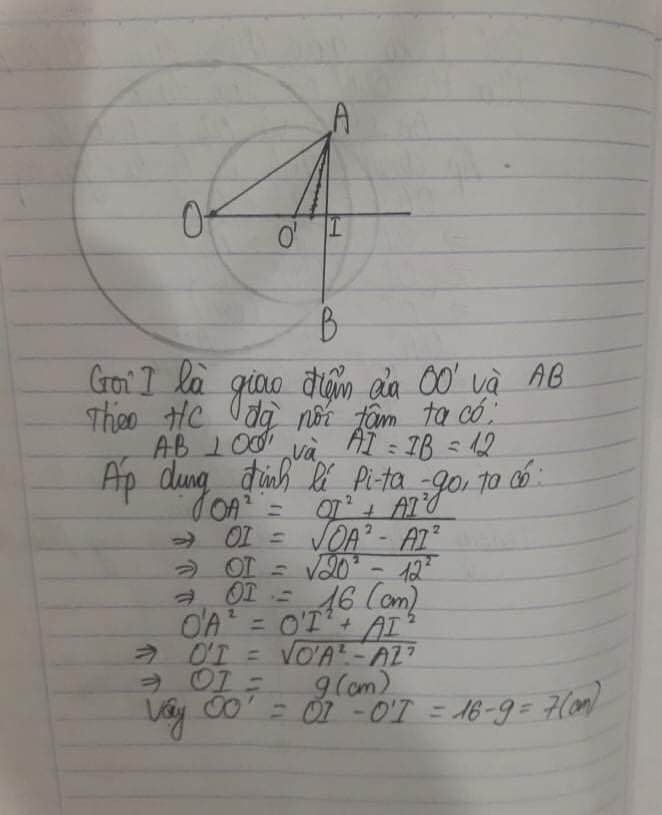 A
O
O'
I
B
Gọi I là giao điểm của OO' và AB
Theo HC đg nối tâm ta có:
AB ⊥ OO' và AI = IB = 12
Áp dụng định lí Pi-ta-go, ta có:
OA² = OI² + AI²
⇒ OI = √OA² - AI²
⇒ OI = √20² - 12²
⇒ OI = 16 (cm)
O'A² = O'I² + AI²
⇒ O'I = √O'A² - AI²
⇒ OI = 9 (cm)
Vậy OO' = OI - O'I = 16 - 9 = 7 (cm)